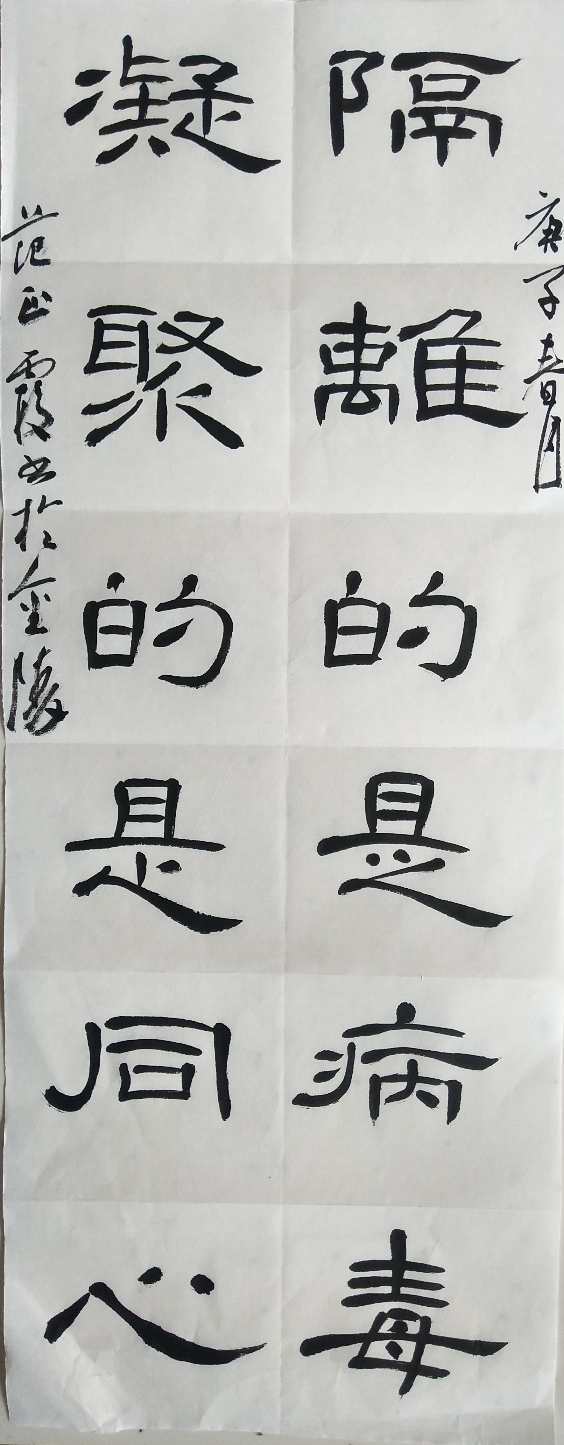 庚子春月
隔離的是病毒
凝聚的是同心
范正霞书於金陵